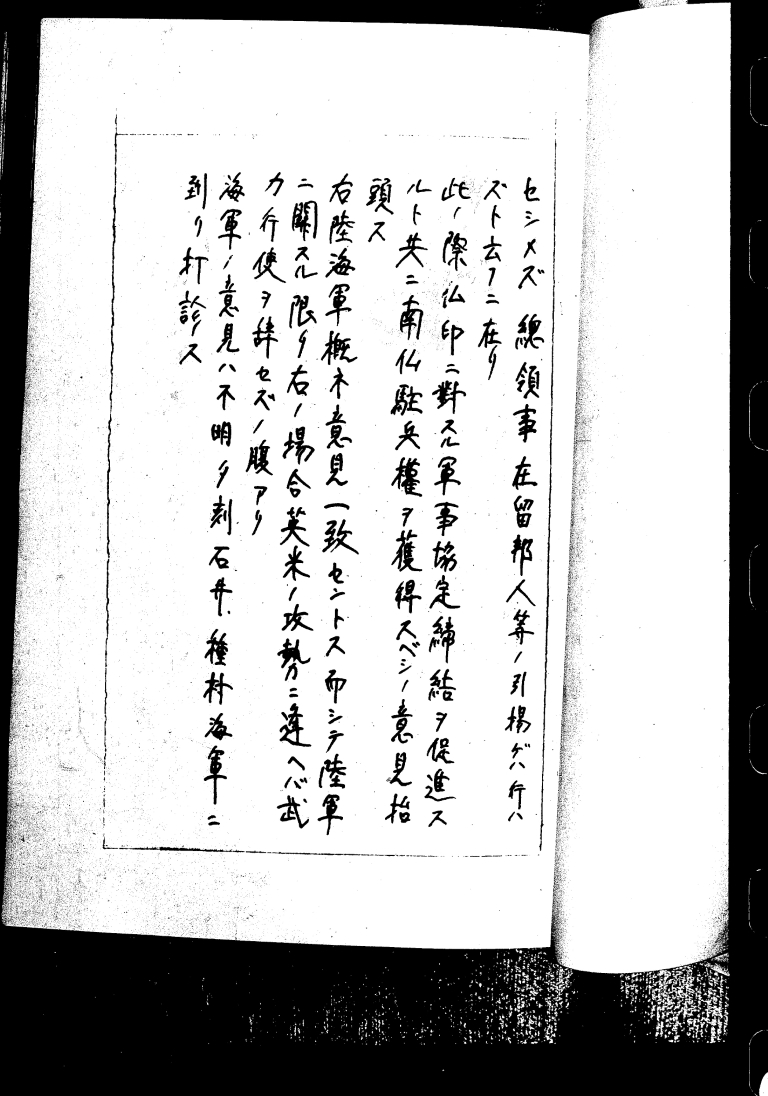 セシメズ總領事在留邦人等ノ引揚ゲハ行ハ
ズト云フニ在リ
此ノ際仏印ニ對スル軍事協定締結ヲ促進ス
ルト共ニ南仏駐兵權ヲ獲得スベシノ意見抬
頭ス
右陸海軍概ネ意見一致セントス而シテ陸軍
ニ關スル限リ右ノ場合英米ノ攻勢ニ逢ヘバ武
力行使ヲ辞セズノ腹アリ
海軍ノ意見ハ不明夕刻石井、種村海軍ニ
到リ打診ス